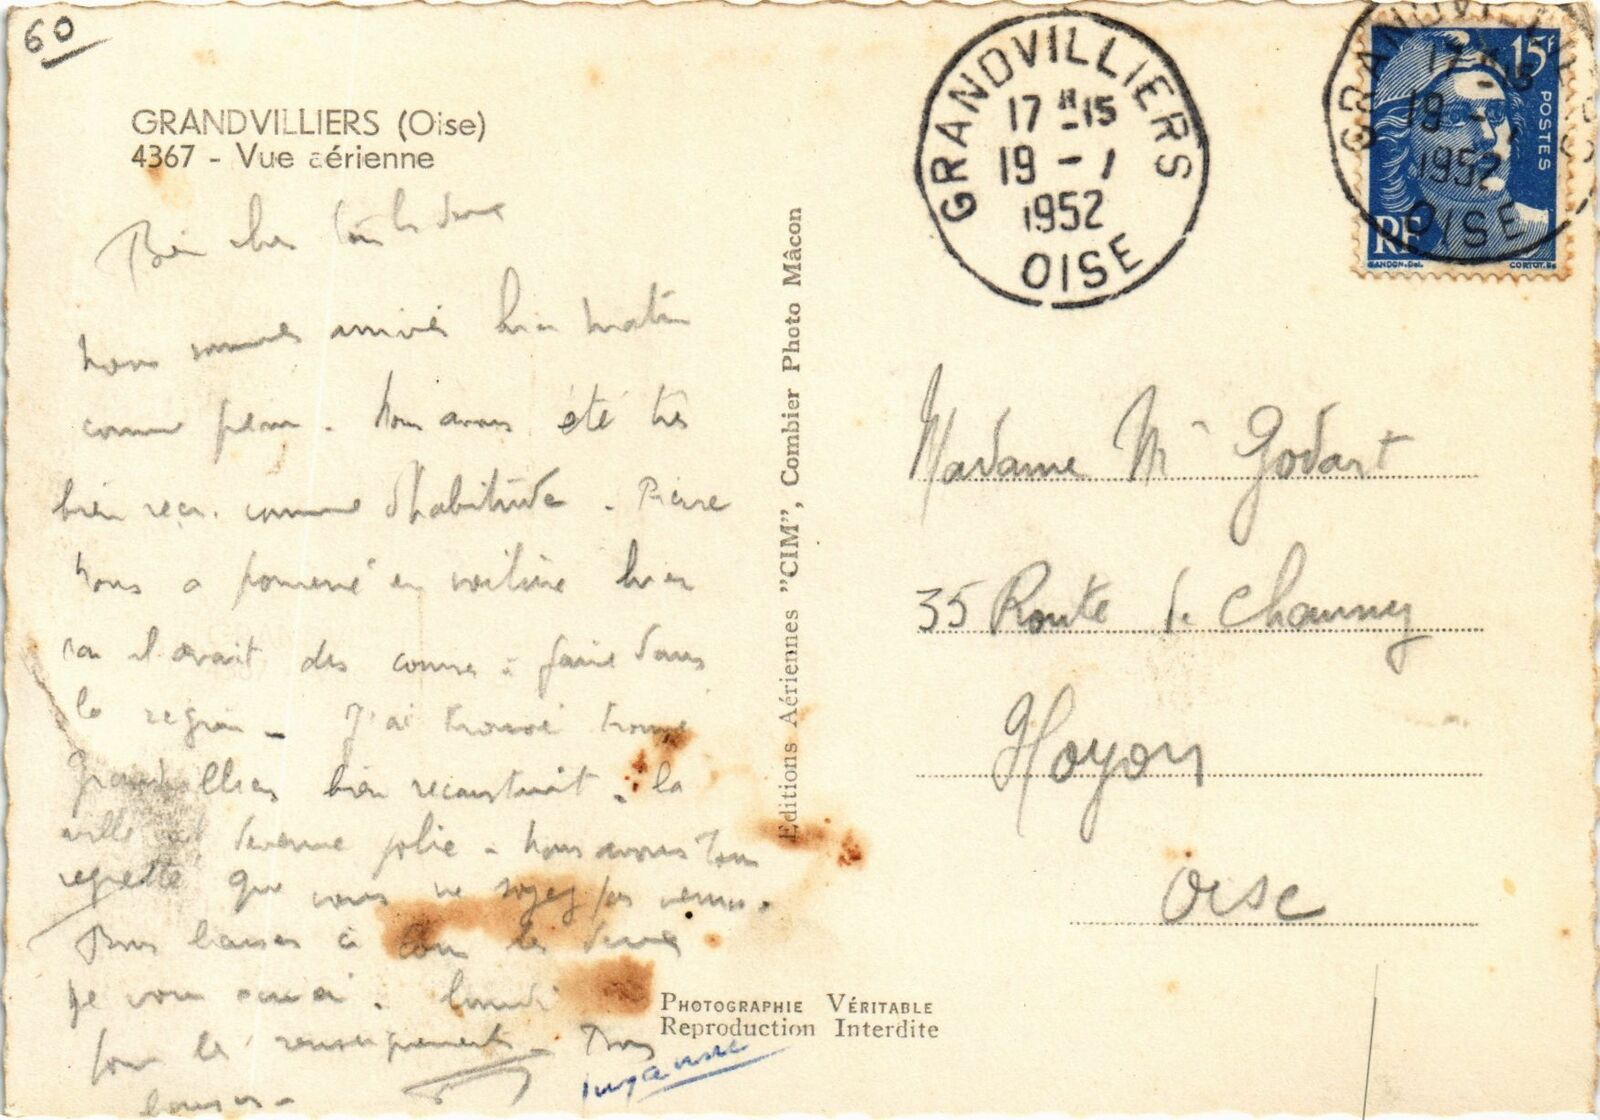 60
GRANDVILLIERS (Oise)
4367 - Vue aérienne
Bien chers tous les deux
Nous sommes arrivés hier matin
comme prévu. Nous avons été très
bien reçu. comme d'habitude. Pierre
nous a promené en voiture hier
car il avait des course à faire dans
la région - J'ai trouvé
Grandvilliers bien reconstruit. la
ville est devenue jolie - Nous avons tous
regretté que vous ne soyez pas venu.
Bons baisers à tous les deux
Je vous lundi
pour les renseignements - Bons
baisers -
Suzanne
Editions Aériennes "CIM", Combier Photo Mâcon
PHOTOGRAPHIE VÉRITABLE
Reproduction Interdite
GRANDVILLIERS
17H15
19 - 1
1952
OISE
GRANDVILLIERS
17H15
19 - 1
1952
OISE
15F
POSTES
RF
GANDON.Del. CORTOT.Sc
Madame M Godart
35 Route de Chauny
Noyon
Oise